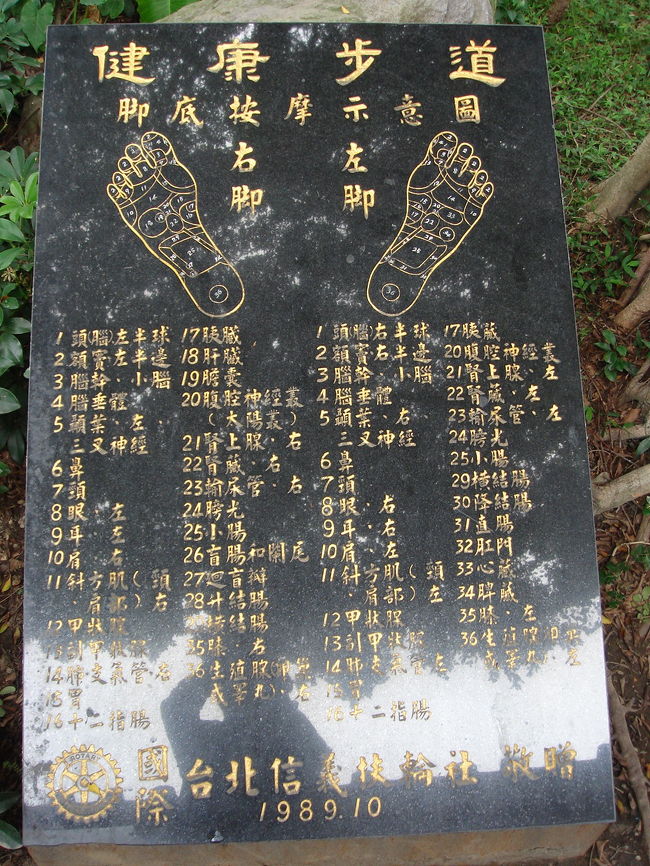 健康步道
脚底按摩示意圖
右脚
左脚
1 頭(腦)左半球
2 額竇左半邊
3 腦幹、小腦
4 腦垂體、
5 頭、左
三叉神經
6 鼻
7 頸
8 眼、左
9 耳、左
10 肩、右
11 斜方肌(頸
、肩部)右
12 甲狀腺
13 副甲狀腺
14 肺支氣管、右
15 胃
16 十二指腸
17 胰臟
18 肝臟
19 膽囊
20 腹腔神經叢
(太陽叢)
21 腎上腺、右
22 腎臟、右
23 輸尿管、右
24 膀光
25 小腸
26 盲腸和闌尾
27 迴盲瓣
28 升結腸
29 橫結腸
35 膝、右
36 生殖腺(卵巢
或睪丸)右
1 頭(腦)右半球
2 額竇右半邊
3 腦幹、小腦
4 腦垂體、
5 頭、右
三叉神經
6 鼻
7 頸
8 眼、右
9 耳、右
10 肩、左
11 斜方肌(頸
、肩部)左
12 甲狀腺
13 副甲狀腺
14 肺支氣管、左
15 胃
16 十二指腸
17 胰臟
20 腹腔神經叢
21 腎上腺、左
22 腎臟、左
23 輸尿管、左
24 膀光
25 小腸
29 橫結腸
30 降結腸
31 直腸
32 肛門
33 心臟
34 脾臟
35 膝、左
36 生殖腺(卵巢
或睪丸)左
ROTARY
國際台北信義扶輪社 敬贈
1989.10